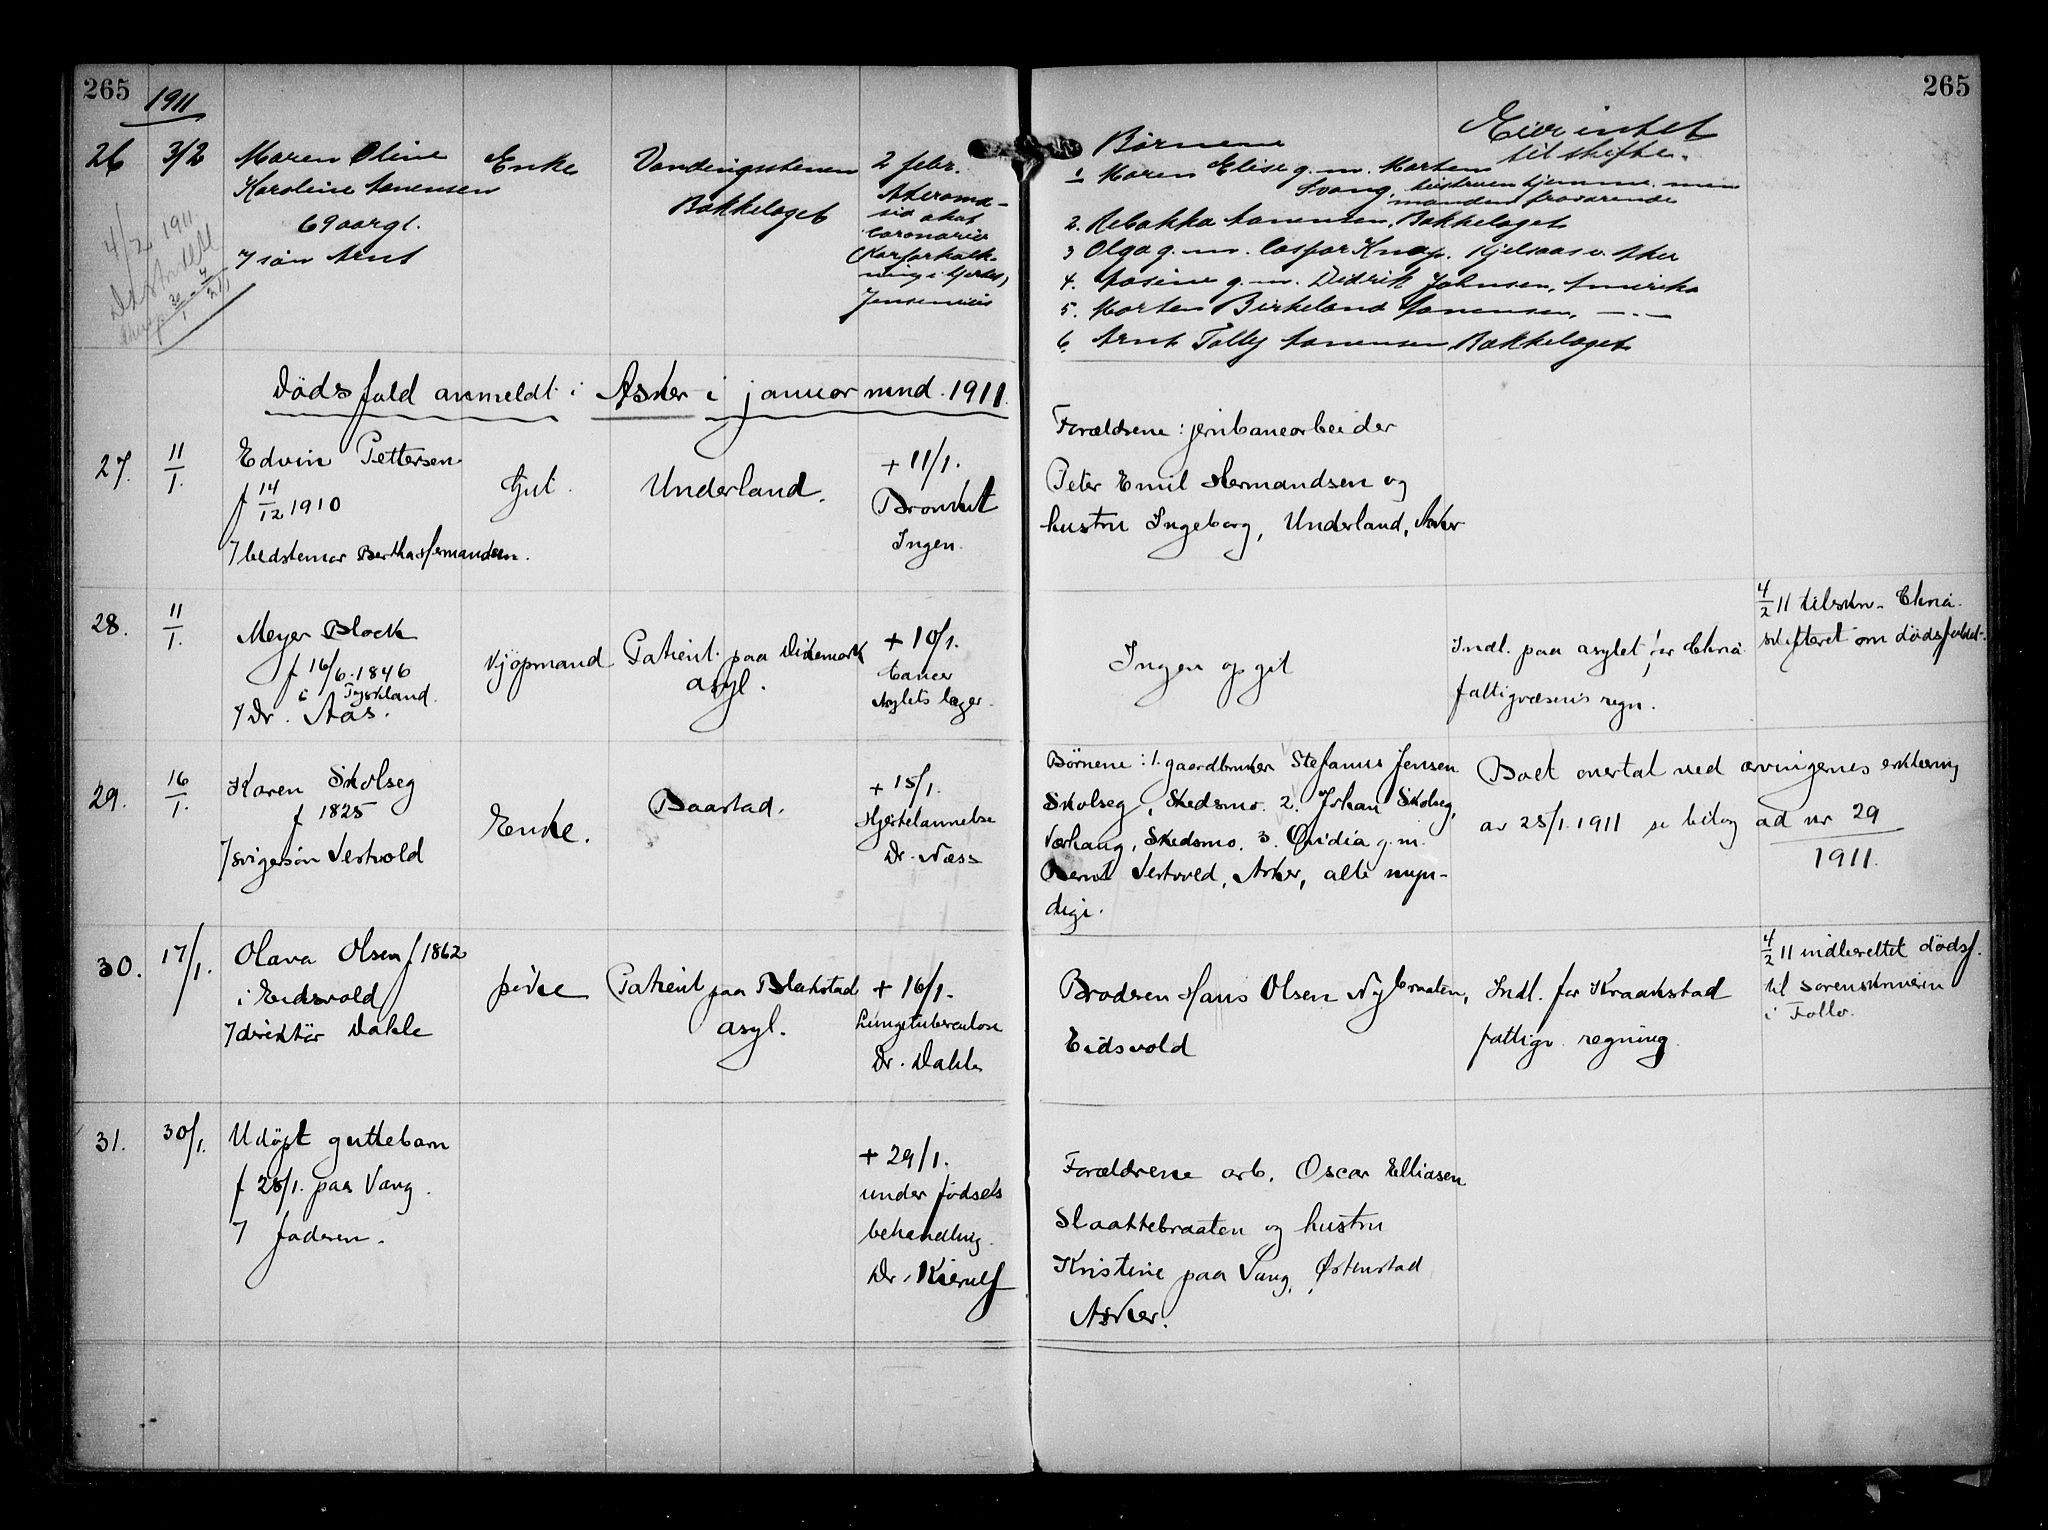 265
1911
265
26
3/2
Maren Oline
Karoline Aanensen
69 aar gl.
7 søn Arnt
4/2 1911
Enke
Vandingsstenen
Bakkelaget
2 febr.
coronaria
(Aarforkalk-
ning i hjertet)
Jensenius
Børnene
1 Maren Elise g. m. Morten
Svang, hustruen hjemme men
manden fraværende
2. Rebekka Aanensen, Bakkelaget
3 Olga g. m. Caspar Knap, Kjelsaas v. Aker
4. Josine g. m. Didrik Johnsen, Amerika
5. Morten Birkeland Aanensen, — " —
6. Arnt Tolly Aanensen Bakkelaget
Eier intet
til skifte.
Dødsfald anmeldt i Asker i januar mnd. 1911
27.
11/1.
Edvin Pettersen
f 14/12 1910
7 bedstemor Bertha Hermandsen.
Gut.
Underland.
+ 11/1.
Bronkit
Ingen.
Forældrene: jernbanearbeider
Peter Emil Hermandsen og
hustru Ingeborg, Underland, Asker
28.
11/1.
Meyer Block
f 16/6. 1846
i Tyskland.
7 Dr. Aas.
Kjøpmand
Patient paa Dikemark
asyl.
+ 10/1.
Cancer
Asylets læge.
Ingen opgit
Indl. paa asylet for Chria
fattigvæsens regn.
4/2 11 tilskr. Chria.
skifteret om dødsfaldet.
29.
16/1.
Karen Skolseg
f 1825
7 svigersøn Vestvold
Enke.
Baastad.
+ 15/1.
Hjertelammelse
Dr. Næss
Børnene: 1. gaardbruker Stefanus Jensen
Skolseg, Skedsmo. 2. Johan Skolseg,
Vorhaug, Skedsmo. 3. Ovidia g. m.
Bernt Vestvold, Asker, alle myn-
dige.
Boet overtat ved arvingernes erklæring
av 28/1. 1911 se bilag ad nr 29
1911.
30.
17/1.
Olava Olsen f 1862
i Eidsvold
7 direktør Dahle
pike
Patient paa Blakstad
asyl.
+ 16/1.
Lungetuberculose
Dr. Dahle
Brodren Hans Olsen Nybraaten,
Eidsvold
Indl. for Kraakstad
fattigv. regning.
4/2 11 indberettet dødsf.
til sorenskriveren
i Follo.
31.
30/1.
Udøpt guttebarn
f 28/1. paa Vang.
7 faderen.
+ 29/1.
under fødsels
behandling.
Dr. Kierulf
Forældrene arb. Oscar Elliasen
Slaattebraaten og hustru
Kristine paa Vang, Østenstad
Asker.